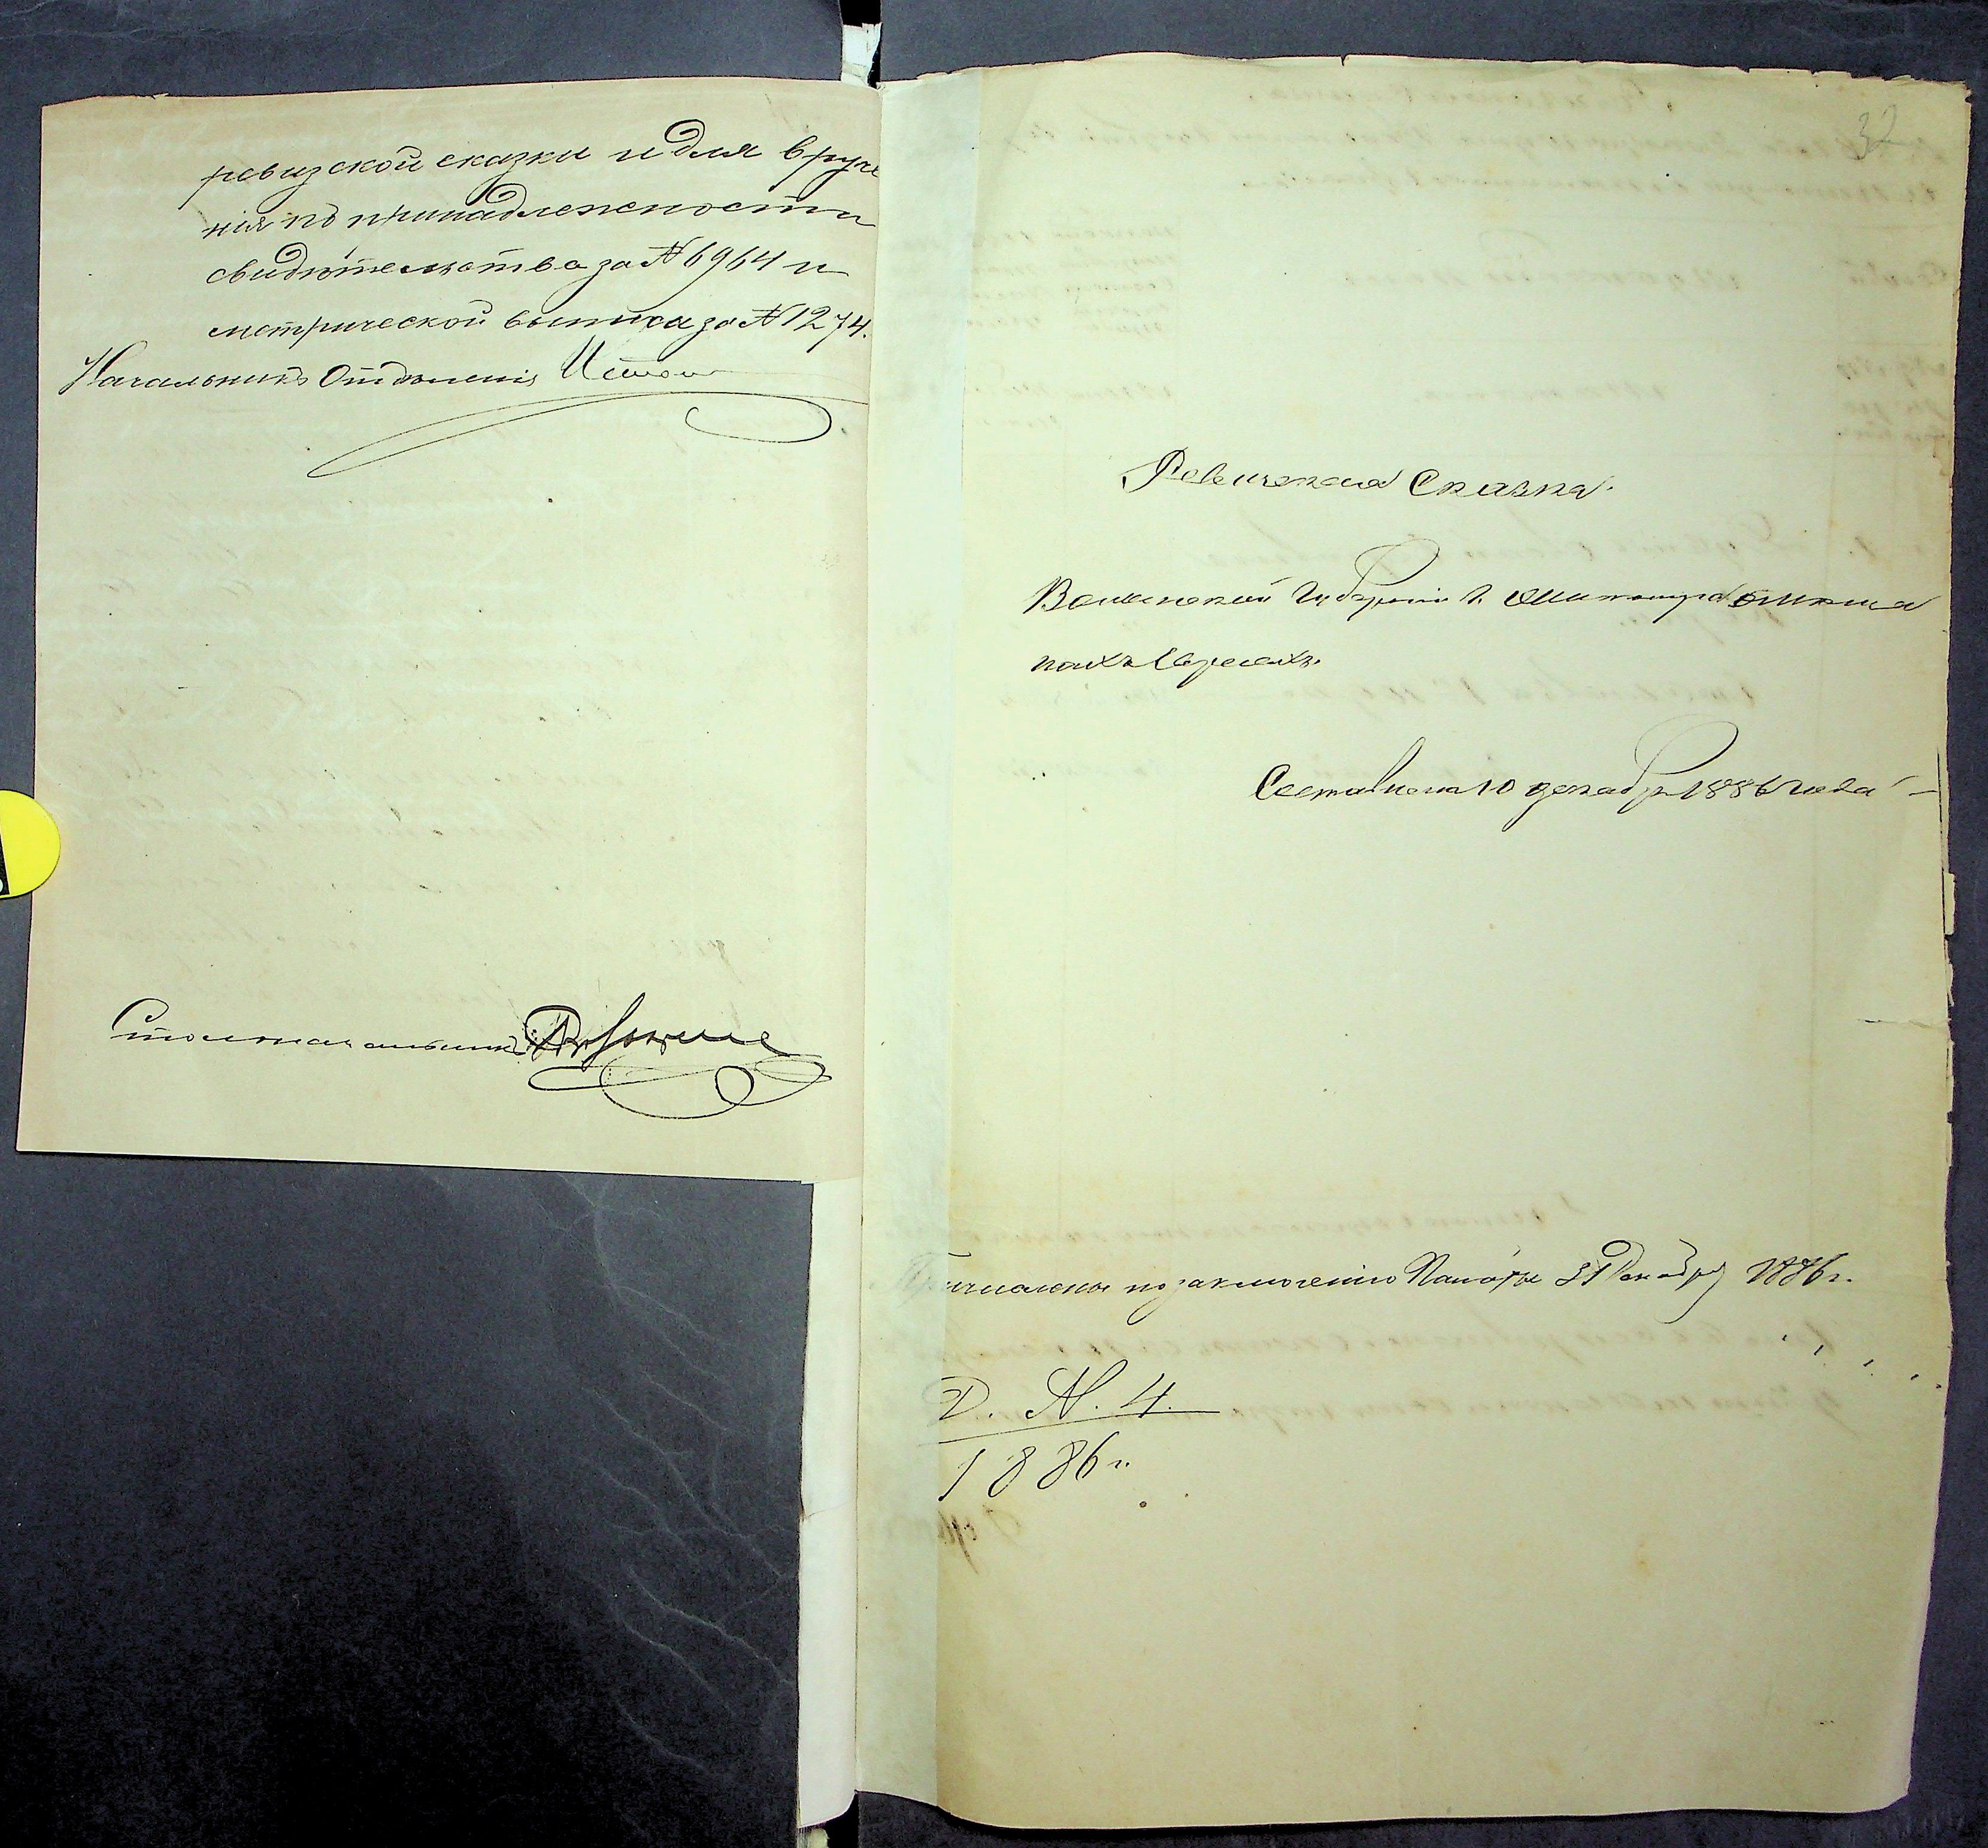 ревизской сказки и для вруче
нія по принадлежности
свидѣтельства за №6964 и
метрической выписи за №1274.
Начальникъ Отдѣленія
Столоначальникъ
32
Ревизская Сказка.
Виленской Губерніи г.
Евреяхъ.
Составлена 10 декабря 1886 года
Причислены по заключенію Палаты 31 Декабря 1886 г.
Д. №. 4.
1886 г.